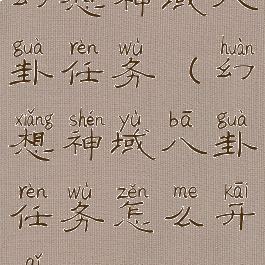 guà rèn wù huàn
卦任务（幻
xiǎng shén yù bā guà
想神域八卦
rèn wù zěn me kāi
任务怎么开